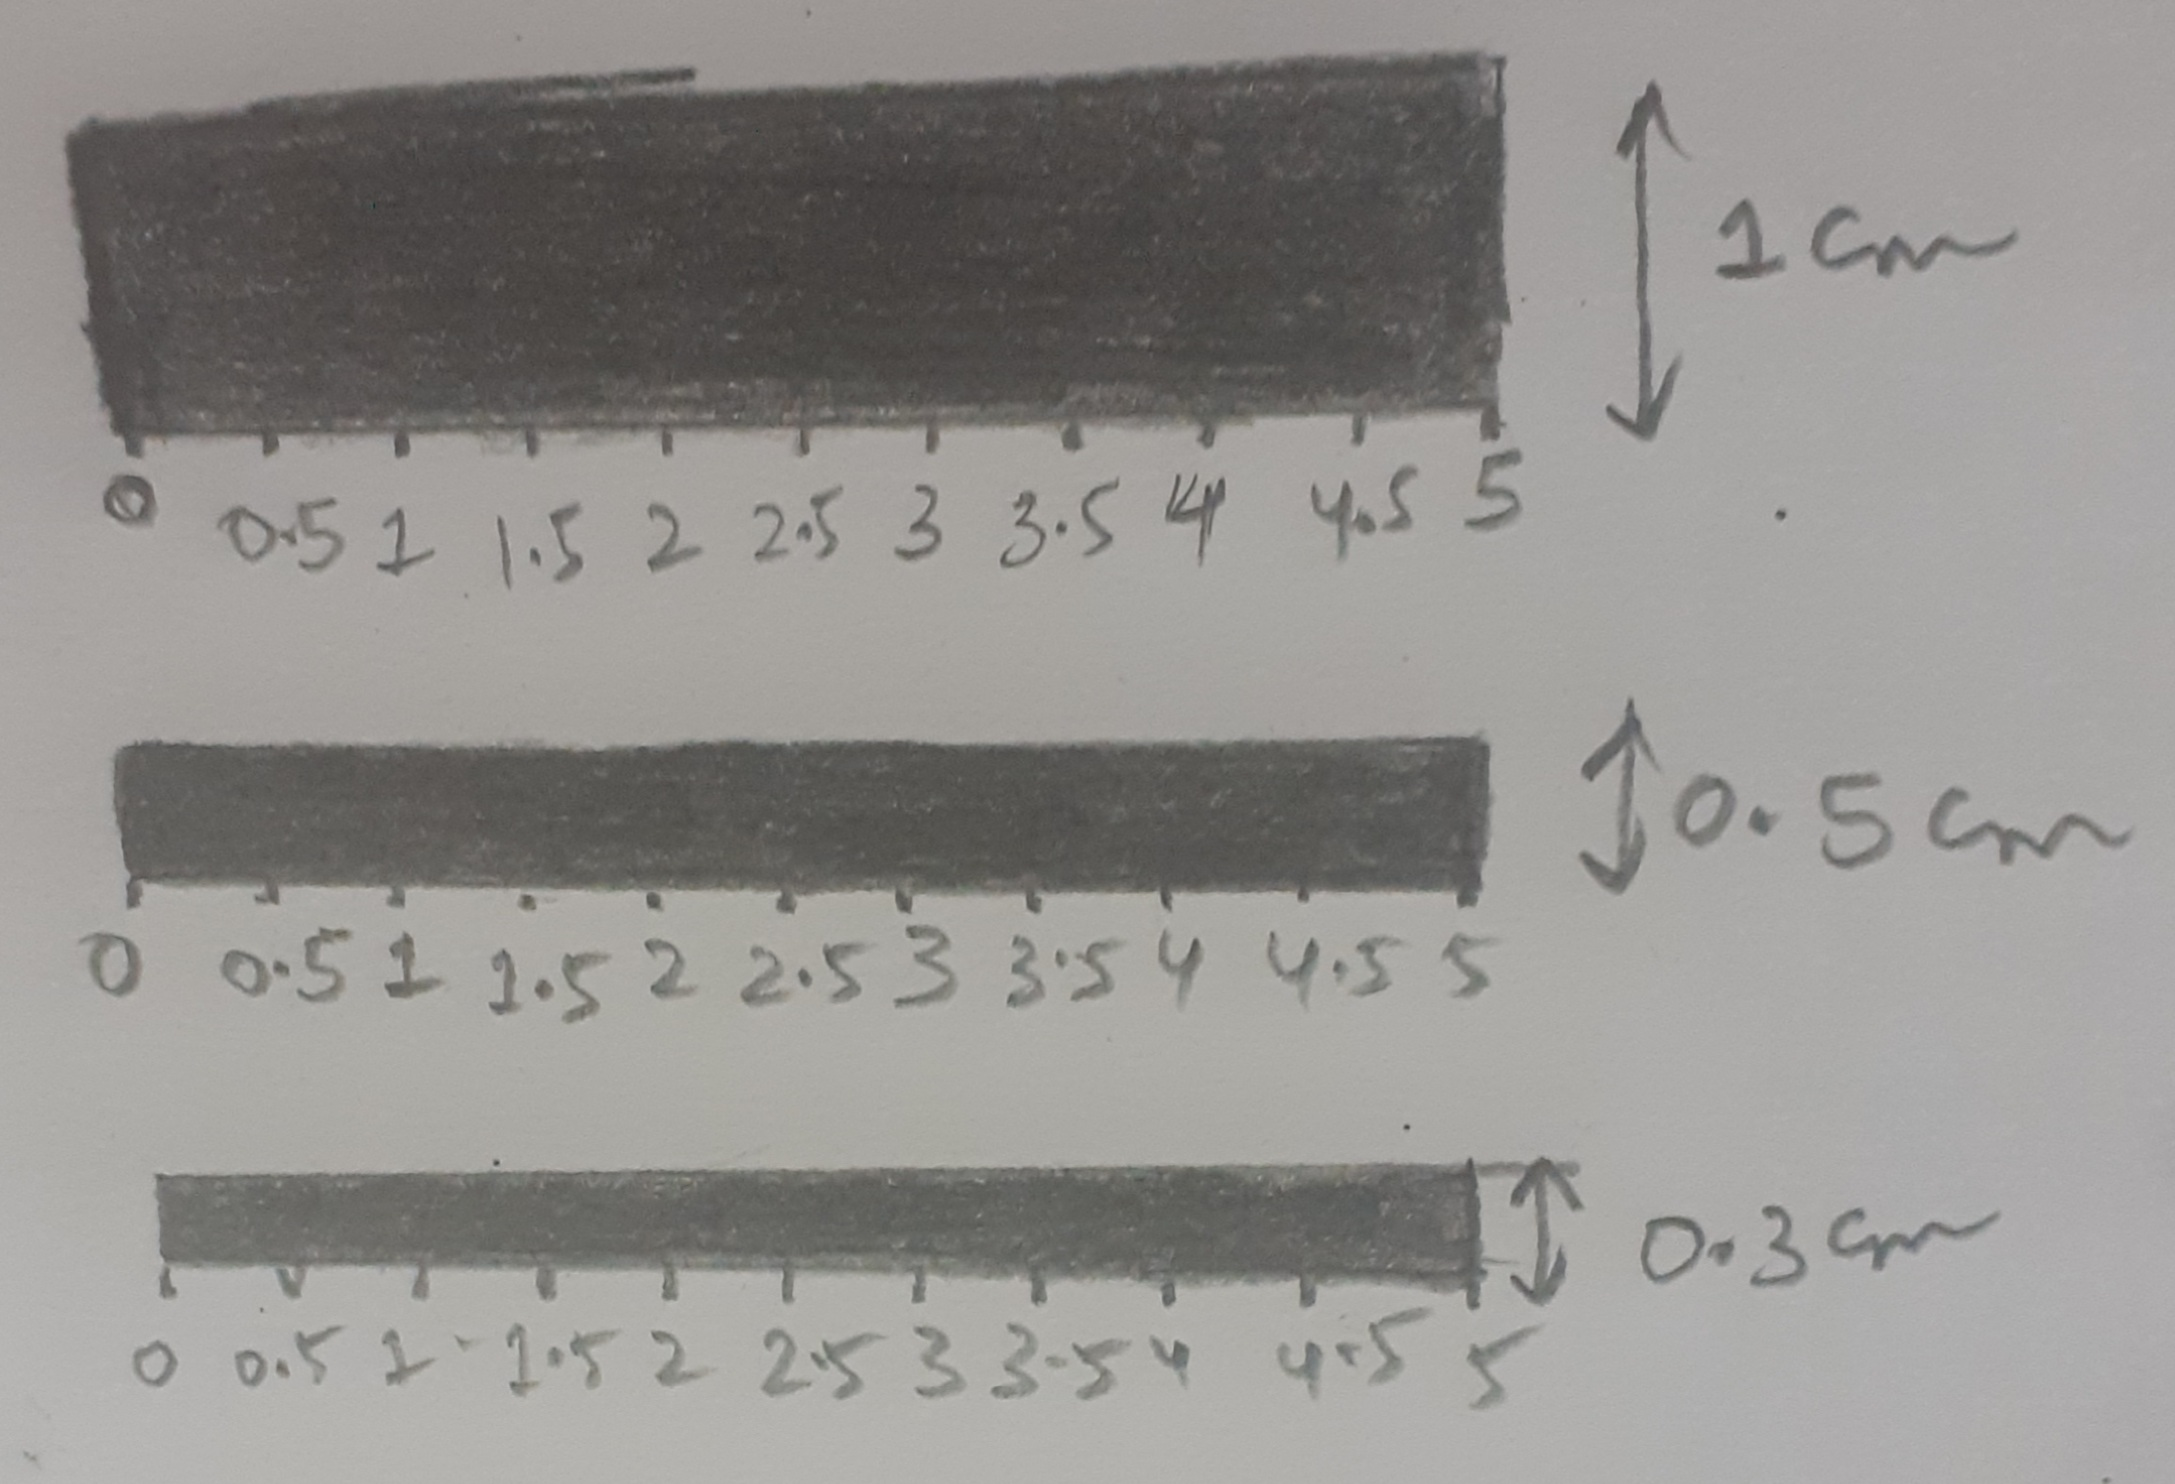 1 cm
0 0.5 1 1.5 2 2.5 3 3.5 4 4.5 5
0.5 cm
0 0.5 1 1.5 2 2.5 3 3.5 4 4.5 5
0.3 cm
0 0.5 1 1.5 2 2.5 3 3.5 4 4.5 5